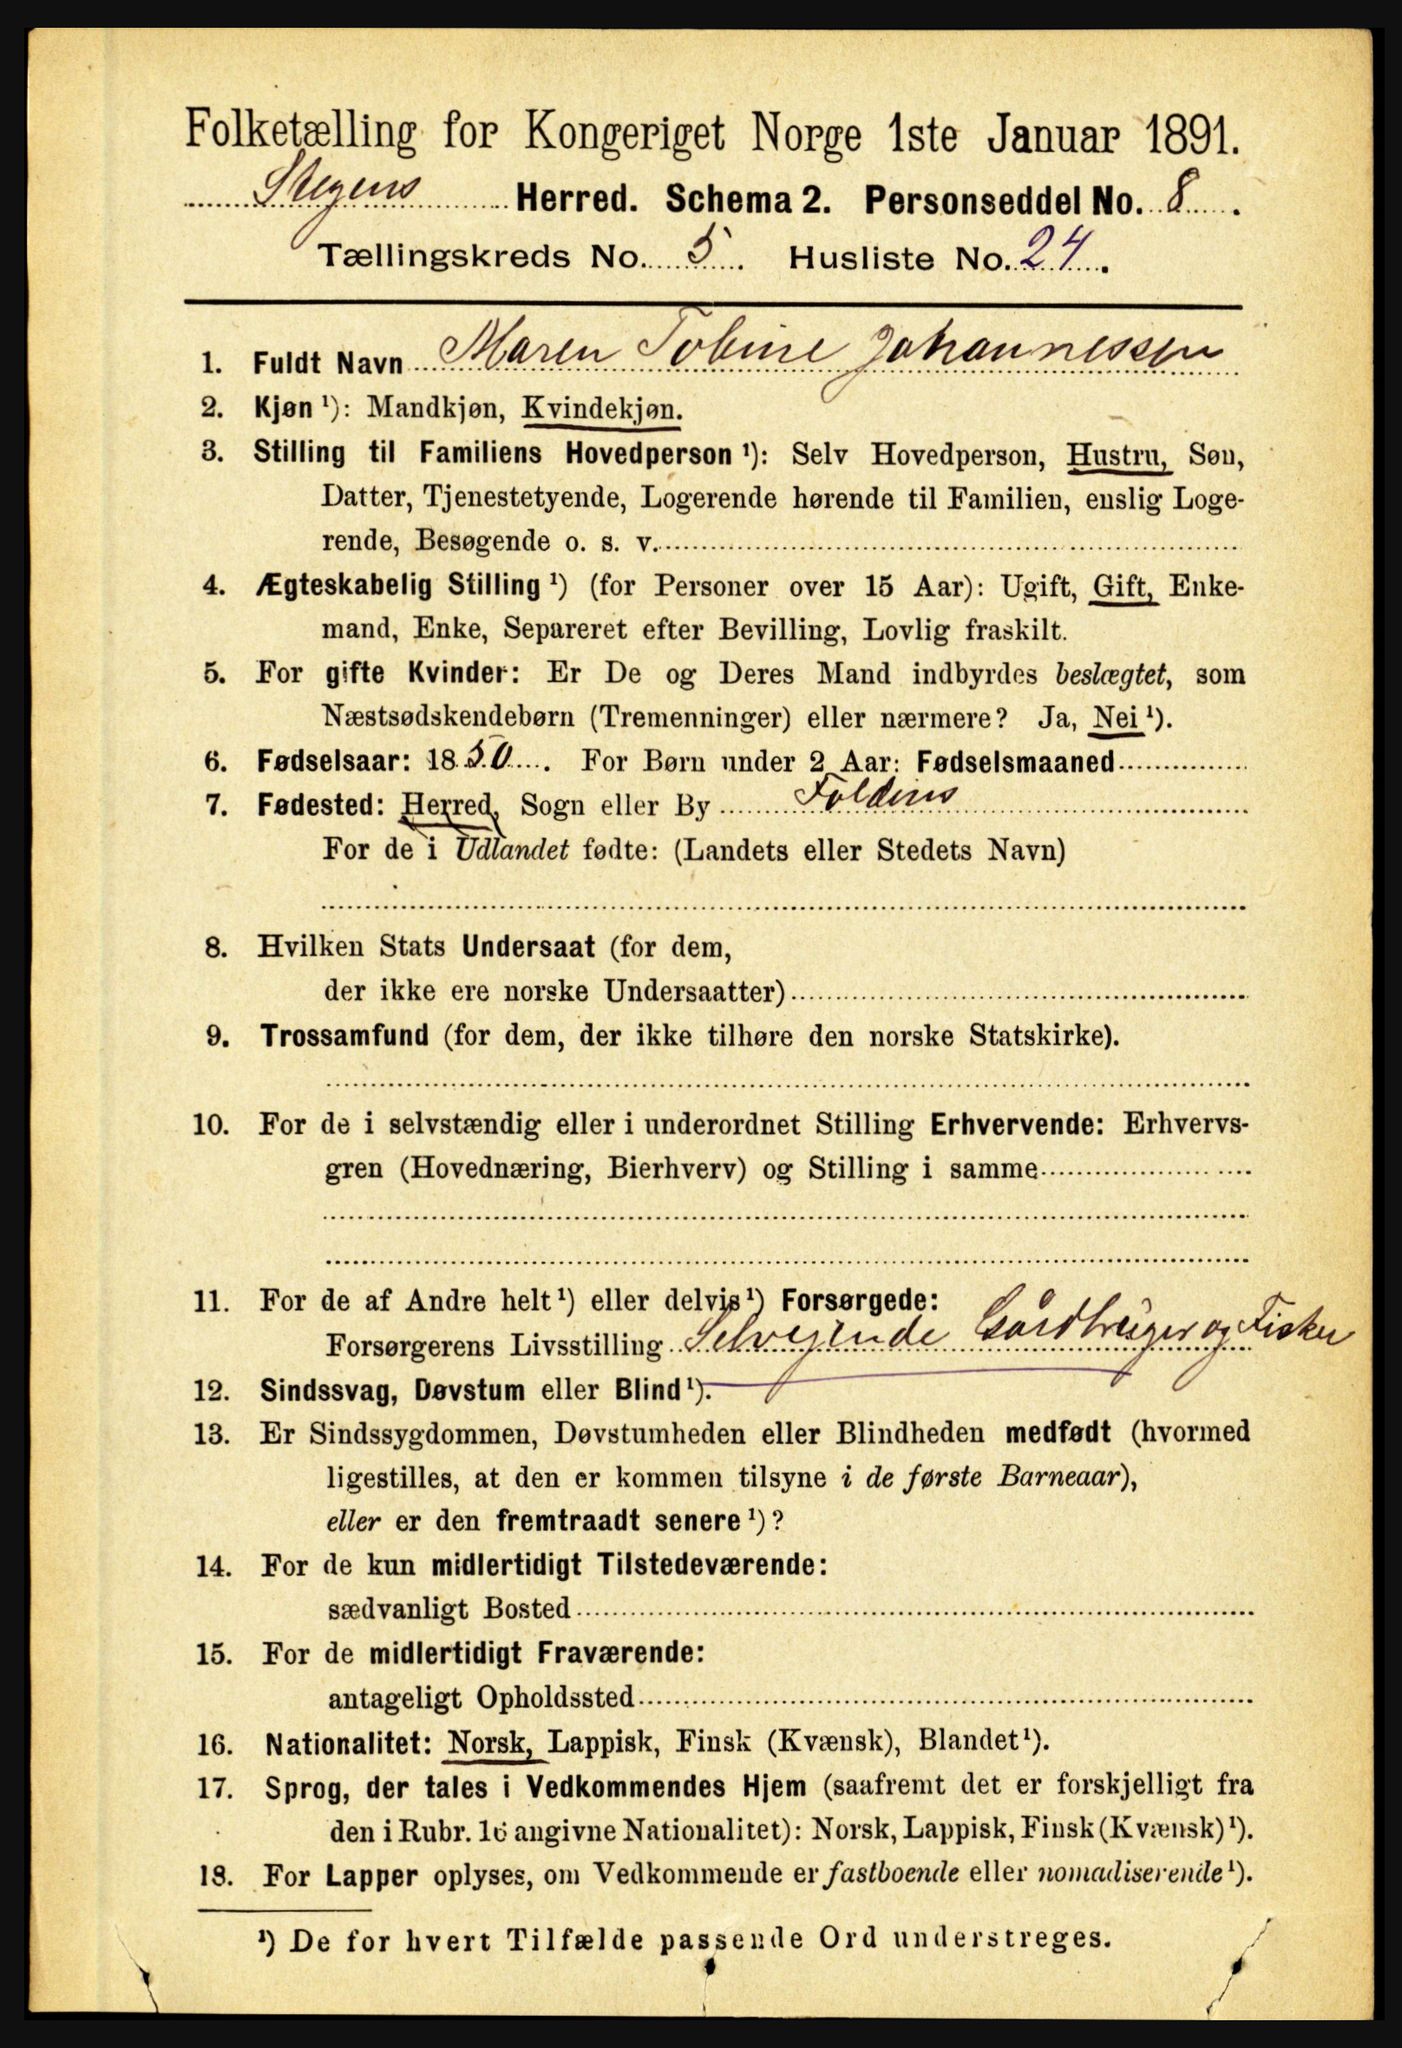 Folketælling for Kongeriget Norge 1ste Januar 1891.
Stegens Herred. Schema 2. Personseddel No. 8.
Tællingskreds No. 5. Husliste No. 24.
1. Fuldt Navn Maren Tobine Johannessen
2. Kjøn ¹): Mandkjøn, Kvindekjøn.
3. Stilling til Familiens Hovedperson ¹): Selv Hovedperson, Hustru, Søn,
Datter, Tjenestetyende, Logerende hørende til Familien, enslig Loge-
rende, Besøgende o. s. v.
4. Ægteskabelig Stilling ¹) (for Personer over 15 Aar): Ugift, Gift, Enke-
mand, Enke, Separeret efter Bevilling, Lovlig fraskilt.
5. For gifte Kvinder: Er De og Deres Mand indbyrdes beslægtet, som
Næstsødskendebørn (Tremenninger) eller nærmere? Ja, Nei ¹).
6. Fødselsaar: 1850. For Børn under 2 Aar: Fødselsmaaned
7. Fødested: Herred, Sogn eller By Foldens
For de i Udlandet fødte: (Landets eller Stedets Navn)
8. Hvilken Stats Undersaat (for dem,
der ikke ere norske Undersaatter)
9. Trossamfund (for dem, der ikke tilhøre den norske Statskirke).
10. For de i selvstændig eller i underordnet Stilling Erhvervende: Erhvervs-
gren (Hovednæring, Bierhverv) og Stilling i samme
11. For de af Andre helt ¹) eller delvis ¹) Forsørgede:
Forsørgerens Livsstilling Selvejende Gårdbruger og Fisker
12. Sindssvag, Døvstum eller Blind ¹).
13. Er Sindssygdommen, Døvstumheden eller Blindheden medfødt (hvormed
ligestilles, at den er kommen tilsyne i de første Barneaar),
eller er den fremtraadt senere ¹)?
14. For de kun midlertidigt Tilstedeværende:
sædvanligt Bosted
15. For de midlertidigt Fraværende:
antageligt Opholdssted
16. Nationalitet: Norsk, Lappisk, Finsk (Kvænsk), Blandet ¹).
17. Sprog, der tales i Vedkommendes Hjem (saafremt det er forskjelligt fra
den i Rubr. 16 angivne Nationalitet): Norsk, Lappisk, Finsk (Kvænsk) ¹).
18. For Lapper oplyses, om Vedkommende er fastboende eller nomadiserende ¹).
¹) De for hvert Tilfælde passende Ord understreges.